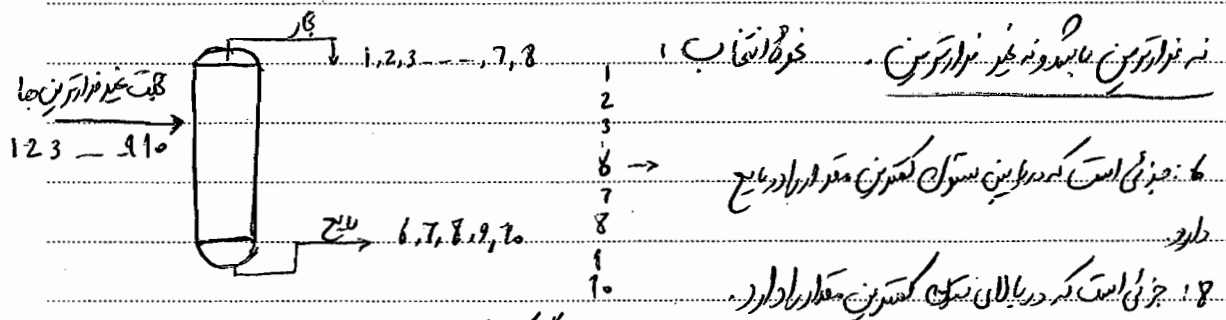 نه فرارترین باشد و نه غیر فرارترین. نحوهٔ انتخاب:
بخار
1,2,3----,7,8
غیر فرارترین ها
123 _ 910
1
2
3
6 →
7
8
9
10
6: جزئی است که در پایین ستون کمترین مقدار را در مایع
دارد.
مایع
6,7,8,9,10
8: جزئی است که در بالای ستون کمترین مقدار را دارد.